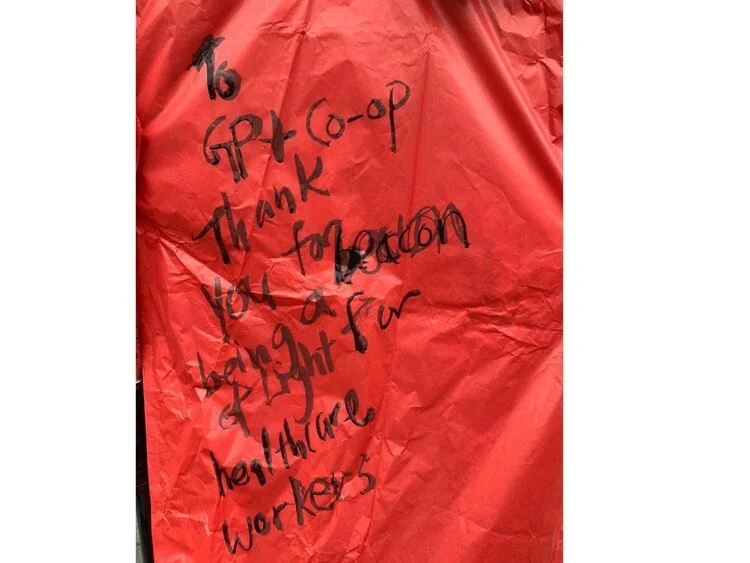 To
GPX Co-op
Thank
you for
being a beacon
of Light for
healthcare
workers